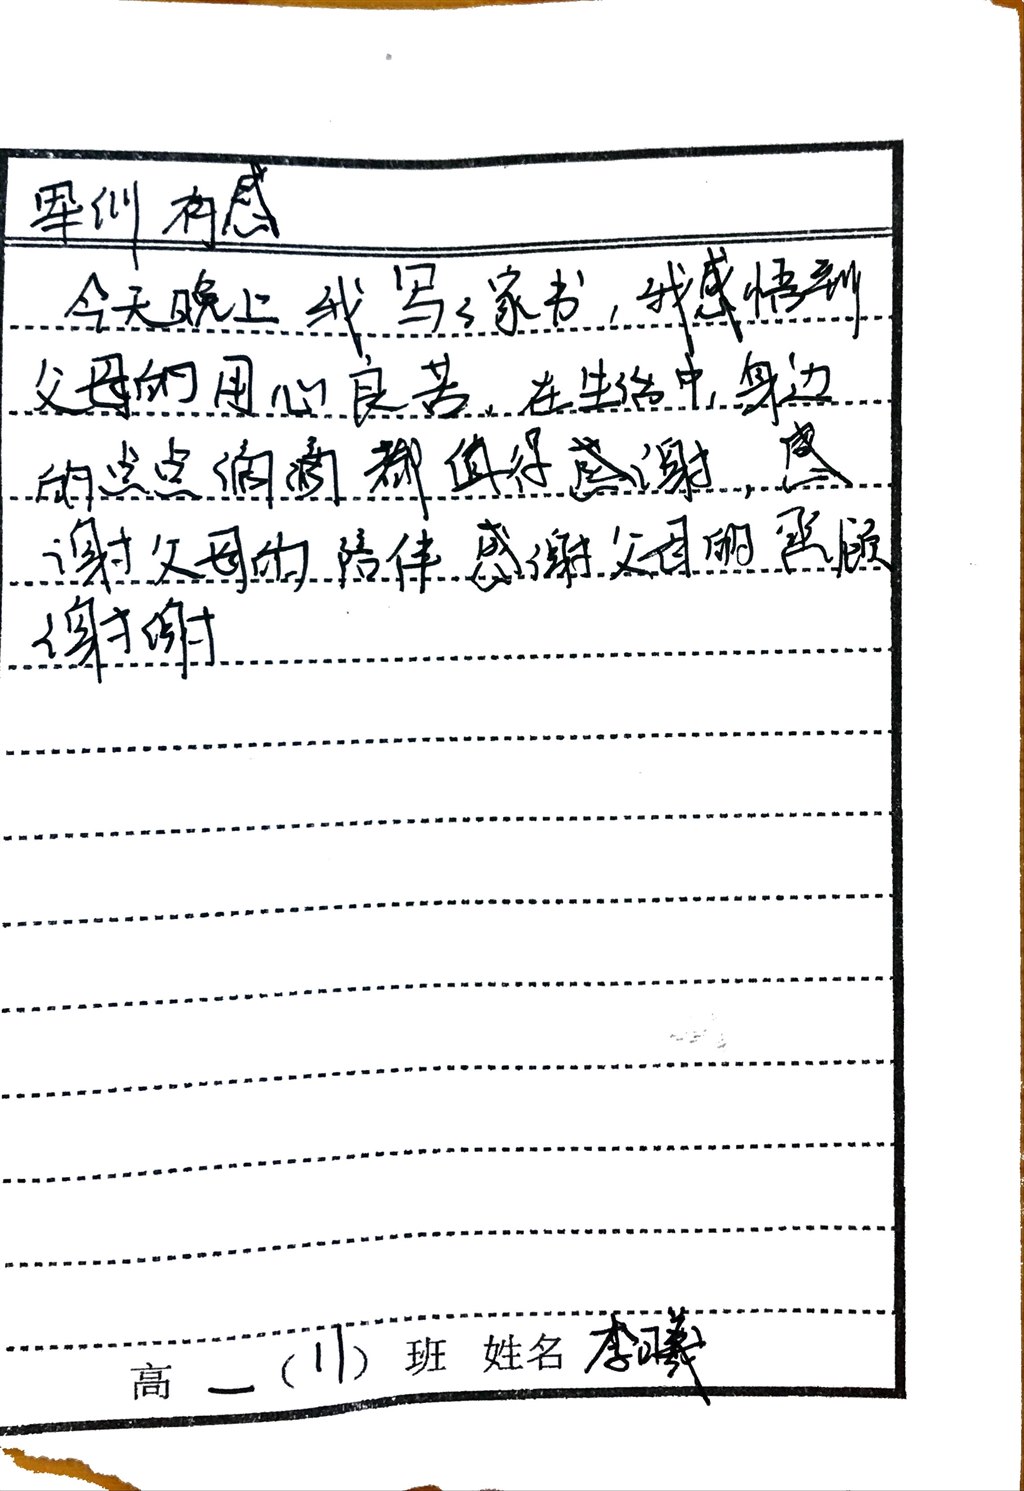 军训有感
今天晚上我写了家书，我感悟到
父母的用心良苦，在生活中，身边
的点点滴滴都值得感谢，感
谢父母的陪伴，感谢父母的照顾
谢谢
高一（11）班 姓名 李曦